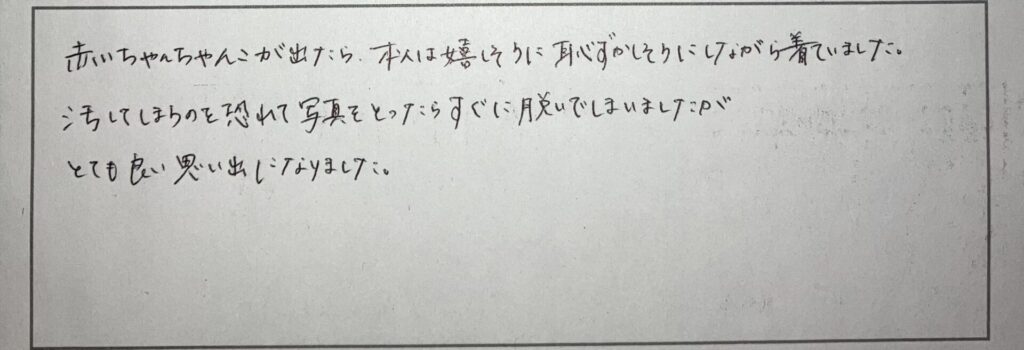 赤いちゃんちゃんこが出たら、本人は嬉しそうに恥ずかしそうにしながら着ていました。
汚してしまうのを恐れて写真をとったらすぐに脱いでしまいましたが
とても良い思い出になりました。